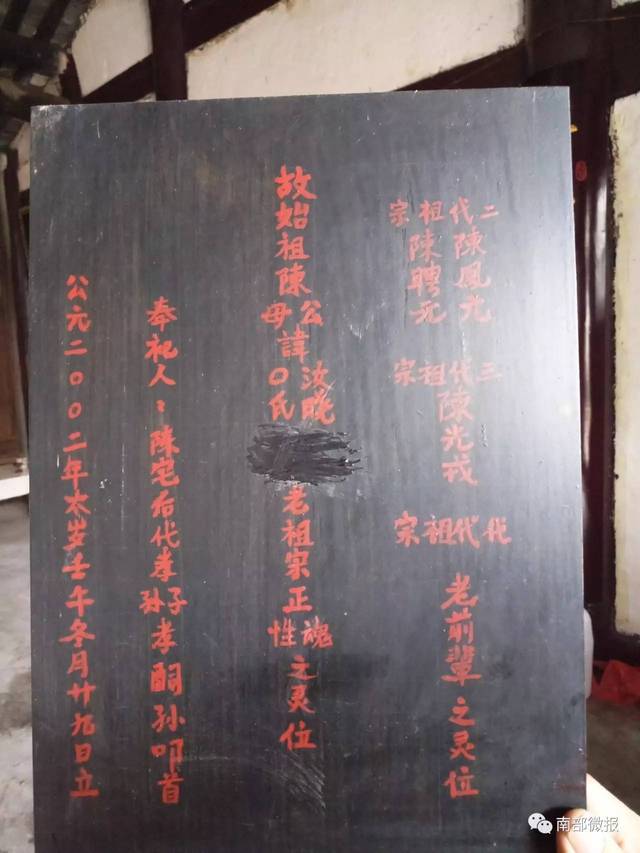 二代祖宗
陳鳳光
陳聘元
三代祖宗
陳光戎
代代祖宗
老前輩之灵位
故始祖陳
公
母
諱
汝晄
〇氏
老祖宗正
魂
性
之灵位
奉祀人：陳宅后代孝
子
孙
孝嗣孙叩首
公元二〇〇二年太岁壬午冬月廿九日立
南部微报